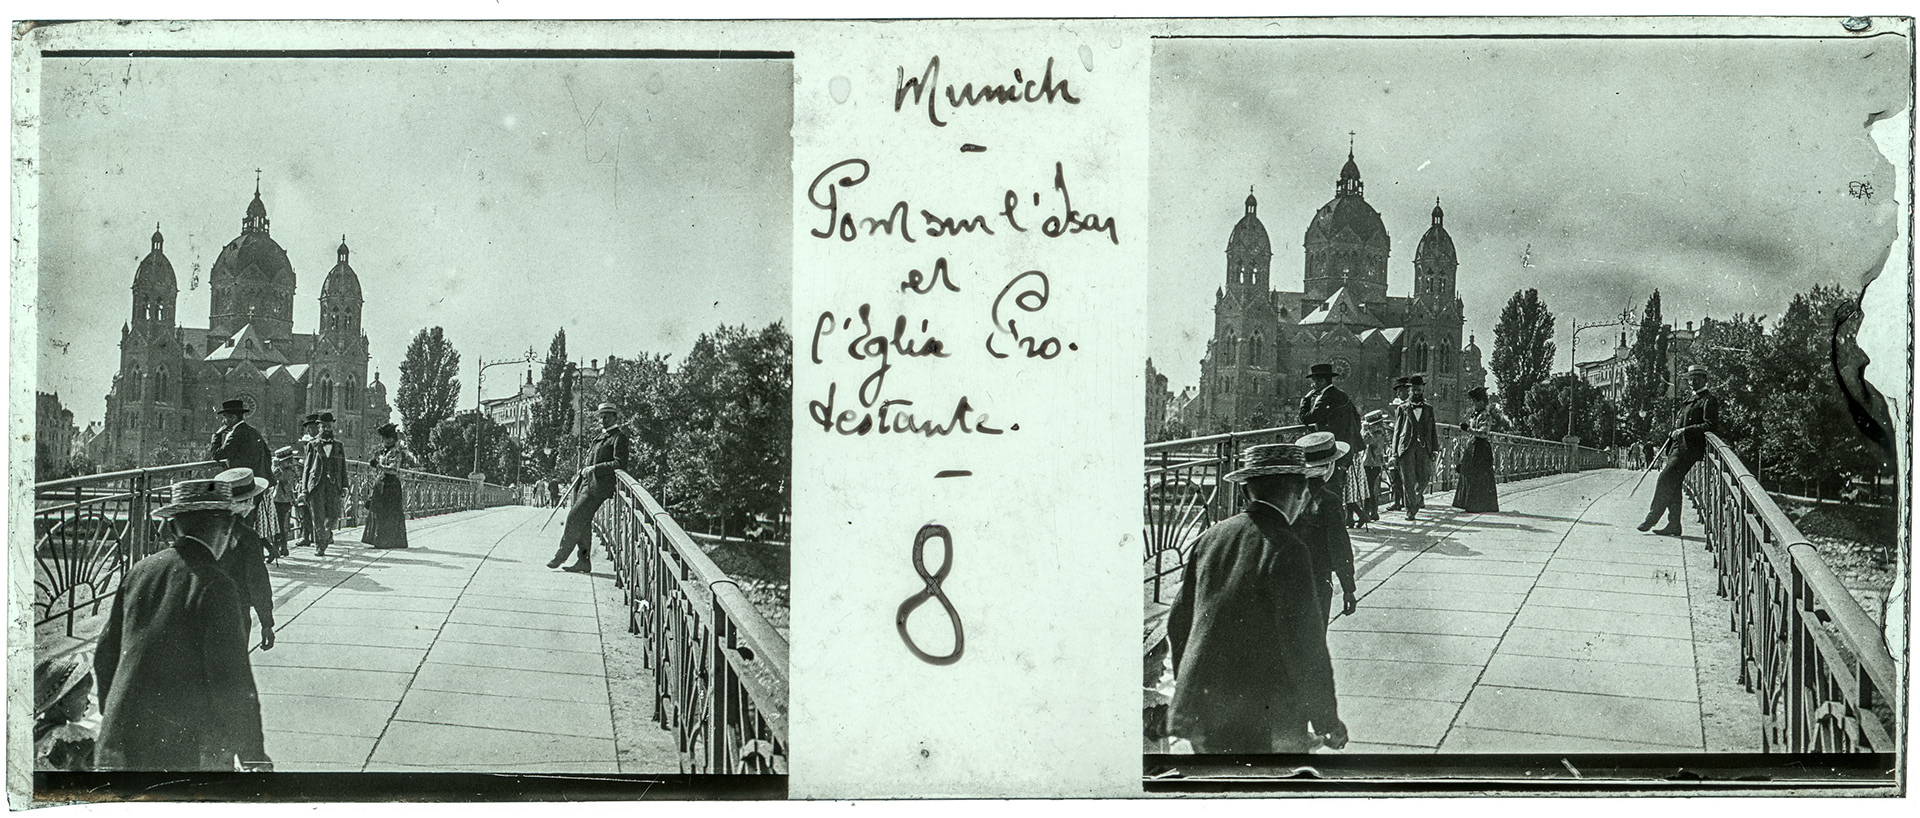 Munich
-
Pont sur l'Isar
et
l'Eglise Pro-
testante.
-
8